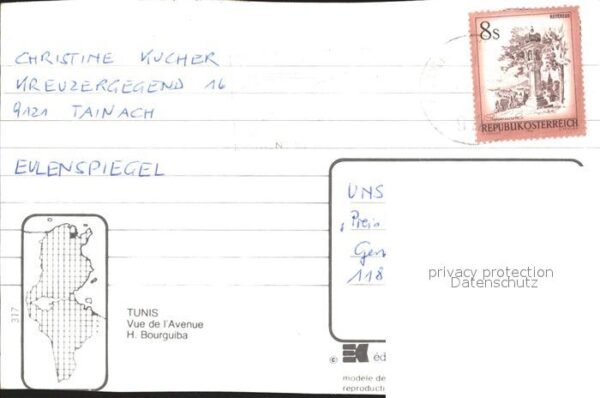 CHRISTINE KUCHER
KREUZERGEGEND 16
9121 TAINACH
EULENSPIEGEL
8S
REPUBLIK ÖSTERREICH
N
UNS
118
privacy protection
Datenschutz
317
TUNIS
Vue de l'Avenue
H. Bourguiba
© EK éd
modele de
reproducti